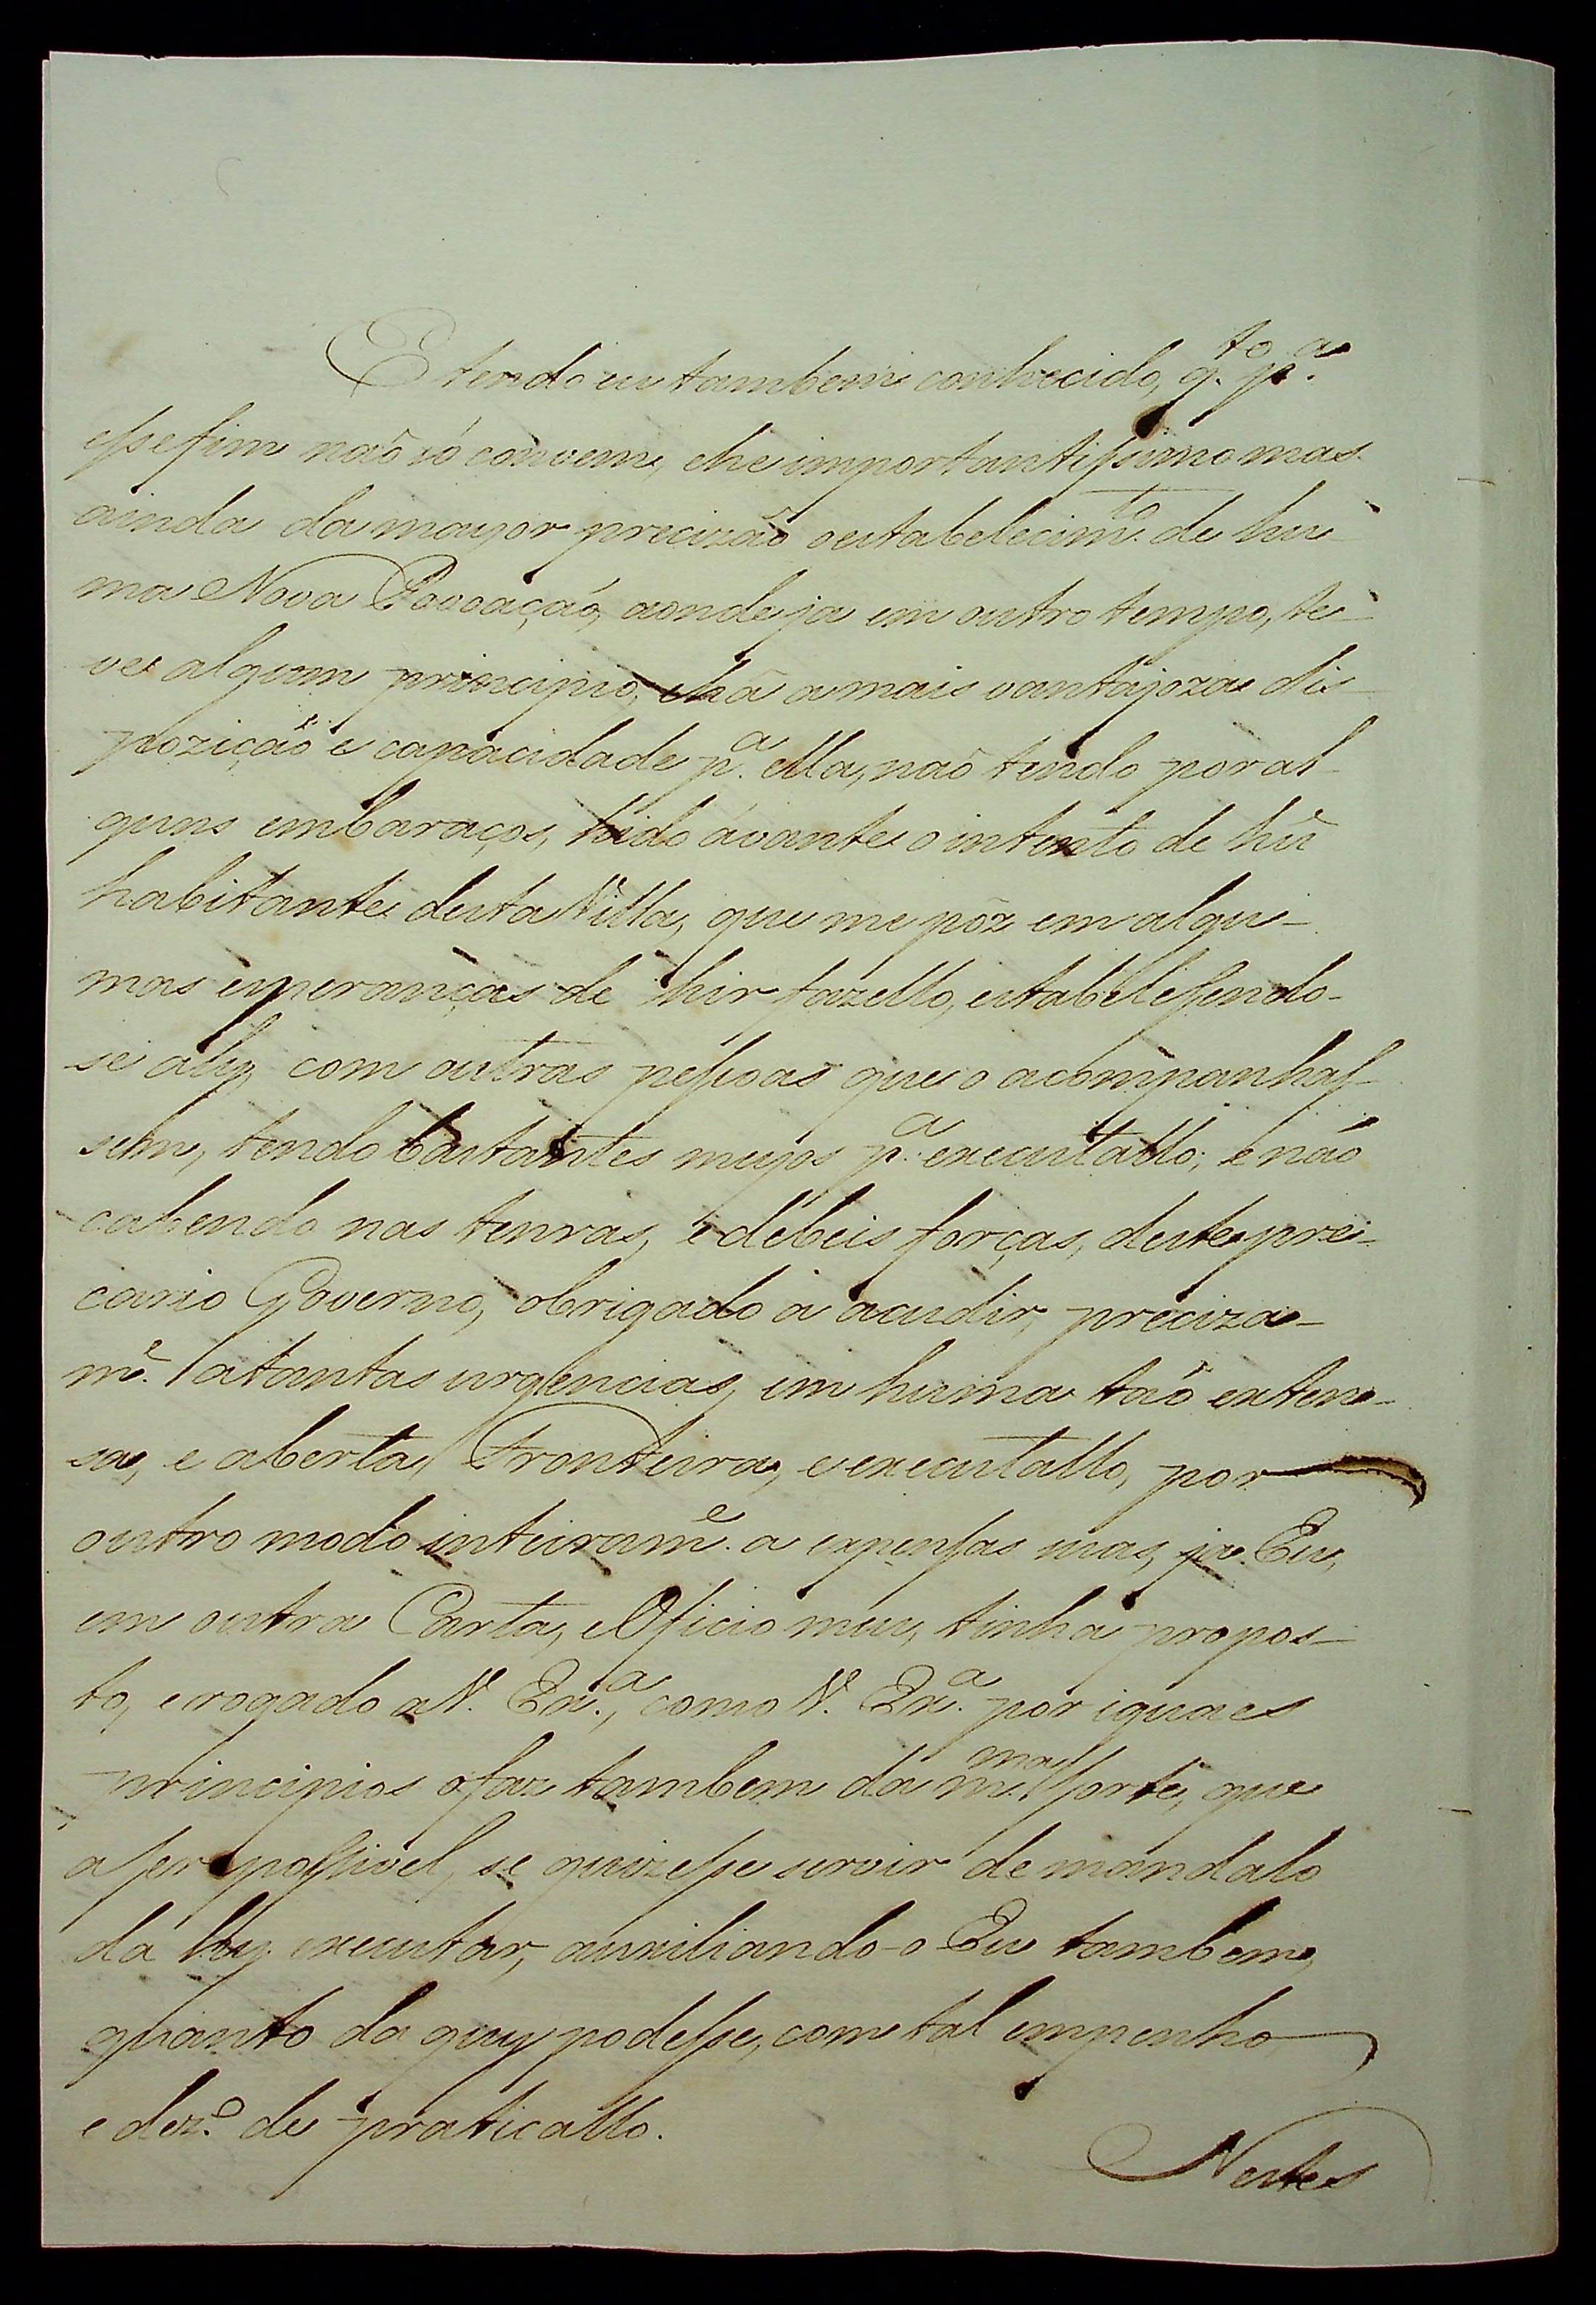 E tendo eu tambem conhecido, q.to p.a
esse fim naõ só convem, e he importantissimo mas
ainda da mayor precizaõ o estabelecim.to de hu-
ma Nova Povoaçaõ, aonde ja em outro tempo, te-
ve algum principio, e hã a mais vantajoza dis-
poziçaõ e capacidade p.a ella, naõ tendo por al-
guns embaraços, hido ávante o intento de hũ
habitante desta Villa, que me pôz em algu-
mas esperanças de hir fazello, estabelessendo-
se aly, com outras pessoas que o acompanhas-
sem, tendo bastantes meyos p.a executallo; e não
cabendo nas tenras, e debeis forças, deste pre-
cario Governo, obrigado a acudir, preciza-
m.e a tantas urgencias, em huma taõ exten-
sa, e aberta Fronteira, e executallo, por
outro modo inteiram.e a expensas mas, ja Eu,
em outra Carta, e Oficio meu, tinha propos-
to, e rogado a V. Ex.a, como V. Ex.a por iguaes
principios o faz tambem da m.ma sorte, que
a ser possivel, se quizesse servir de mandalo
da hy executar, auxiliando-o Eu tambem,
quanto da quy podesse, com tal empenho
e dez.o de praticallo.
Nestes